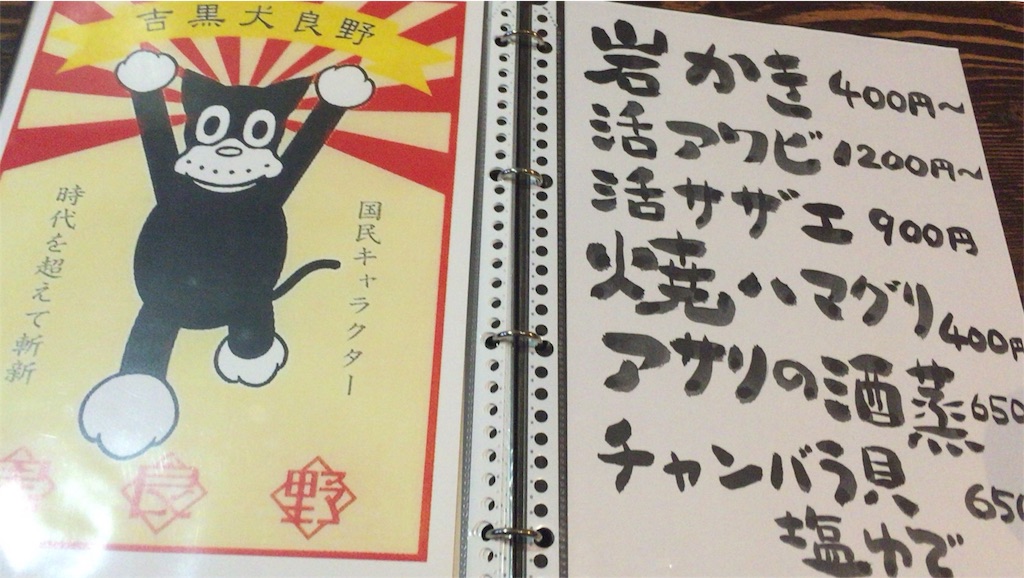 吉黒犬良野
国民キャラクター
時代を超えて斬新
良
野
岩かき 400円〜
活アワビ 1200円〜
活サザエ 900円
焼ハマグリ 400円
アサリの酒蒸 650
チャンバラ貝 650
塩ゆで